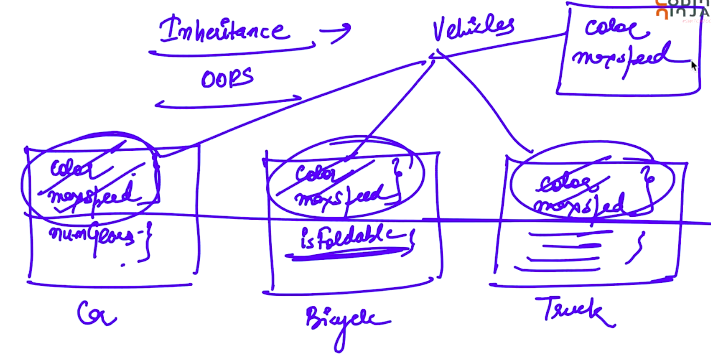 Inheritance → Vehicles
OOPS
color
maxspeed
color
maxspeed
numGears
Car
color
maxspeed
isFoldable
Bicycle
color
maxspeed
Truck
NINJA